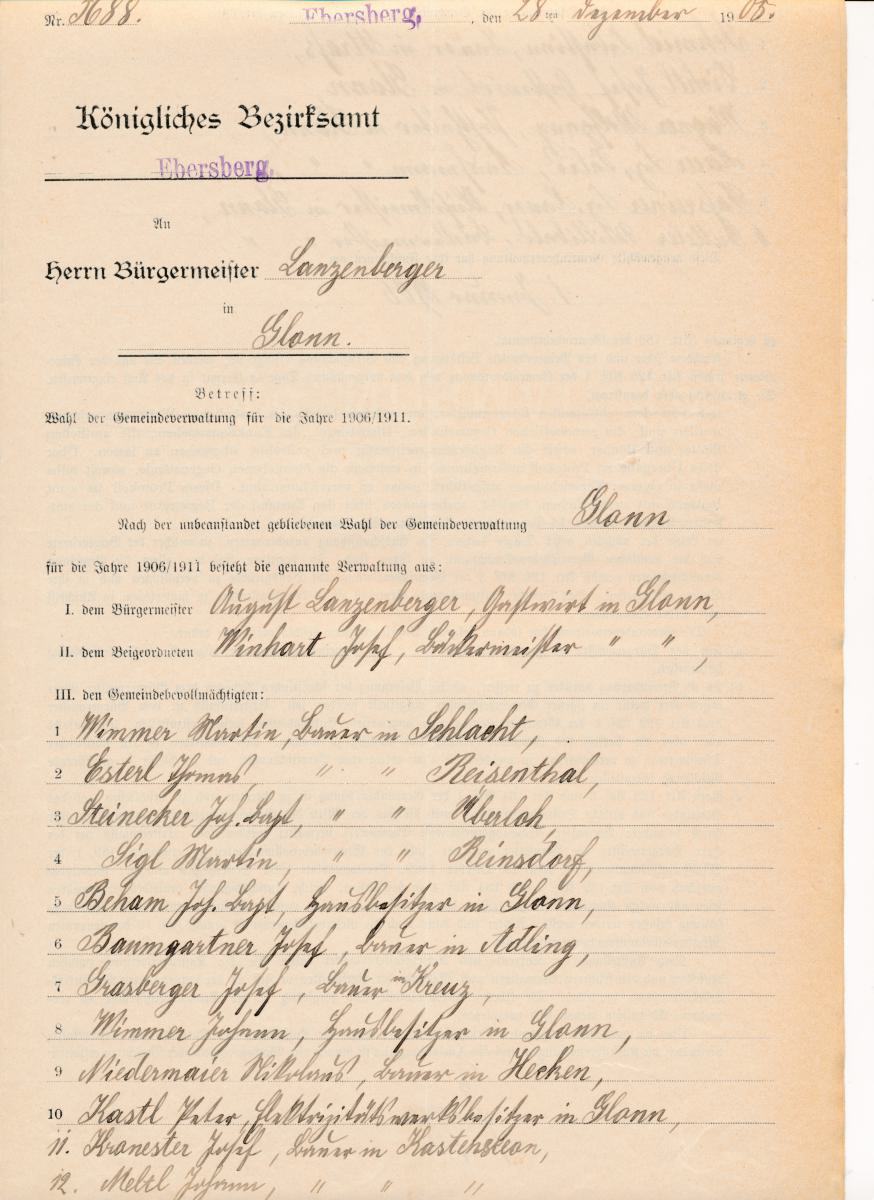 Nr. 3688. Ebersberg, den 28ten Dezember 1905.
Königliches Bezirksamt
Ebersberg.
An
Herrn Bürgermeister Lanzenberger
in
Glonn.
Betreff:
Wahl der Gemeindeverwaltung für die Jahre 1906/1911.
Nach der unbeanstandet gebliebenen Wahl der Gemeindeverwaltung Glonn
für die Jahre 1906/1911 besteht die genannte Verwaltung aus:
I. dem Bürgermeister August Lanzenberger, Gastwirt in Glonn,
II. dem Beigeordneten Winhart Josef, Bäckermeister " ",
III. den Gemeindebevollmächtigten:
1 Wimmer Martin, Bauer in Schlacht,
2 Esterl Thomas, " " Reisenthal,
3 Steinecker Joh. Bapt, " " Überloh,
4 Sigl Martin, " " Reinsdorf,
5 Beham Joh. Bapt, Hausbesitzer in Glonn,
6 Baumgartner Josef, Bauer in Adling,
7 Grasberger Josef, Bauer in Kreuz,
8 Wimmer Johann, Hausbesitzer in Glonn,
9 Niedermaier Nikolaus, Bauer in Hecken,
10 Kastl Peter, Elektrizitätswerksbesitzer in Glonn,
11. Kronester Josef, Bauer in
12. Johann, " " "